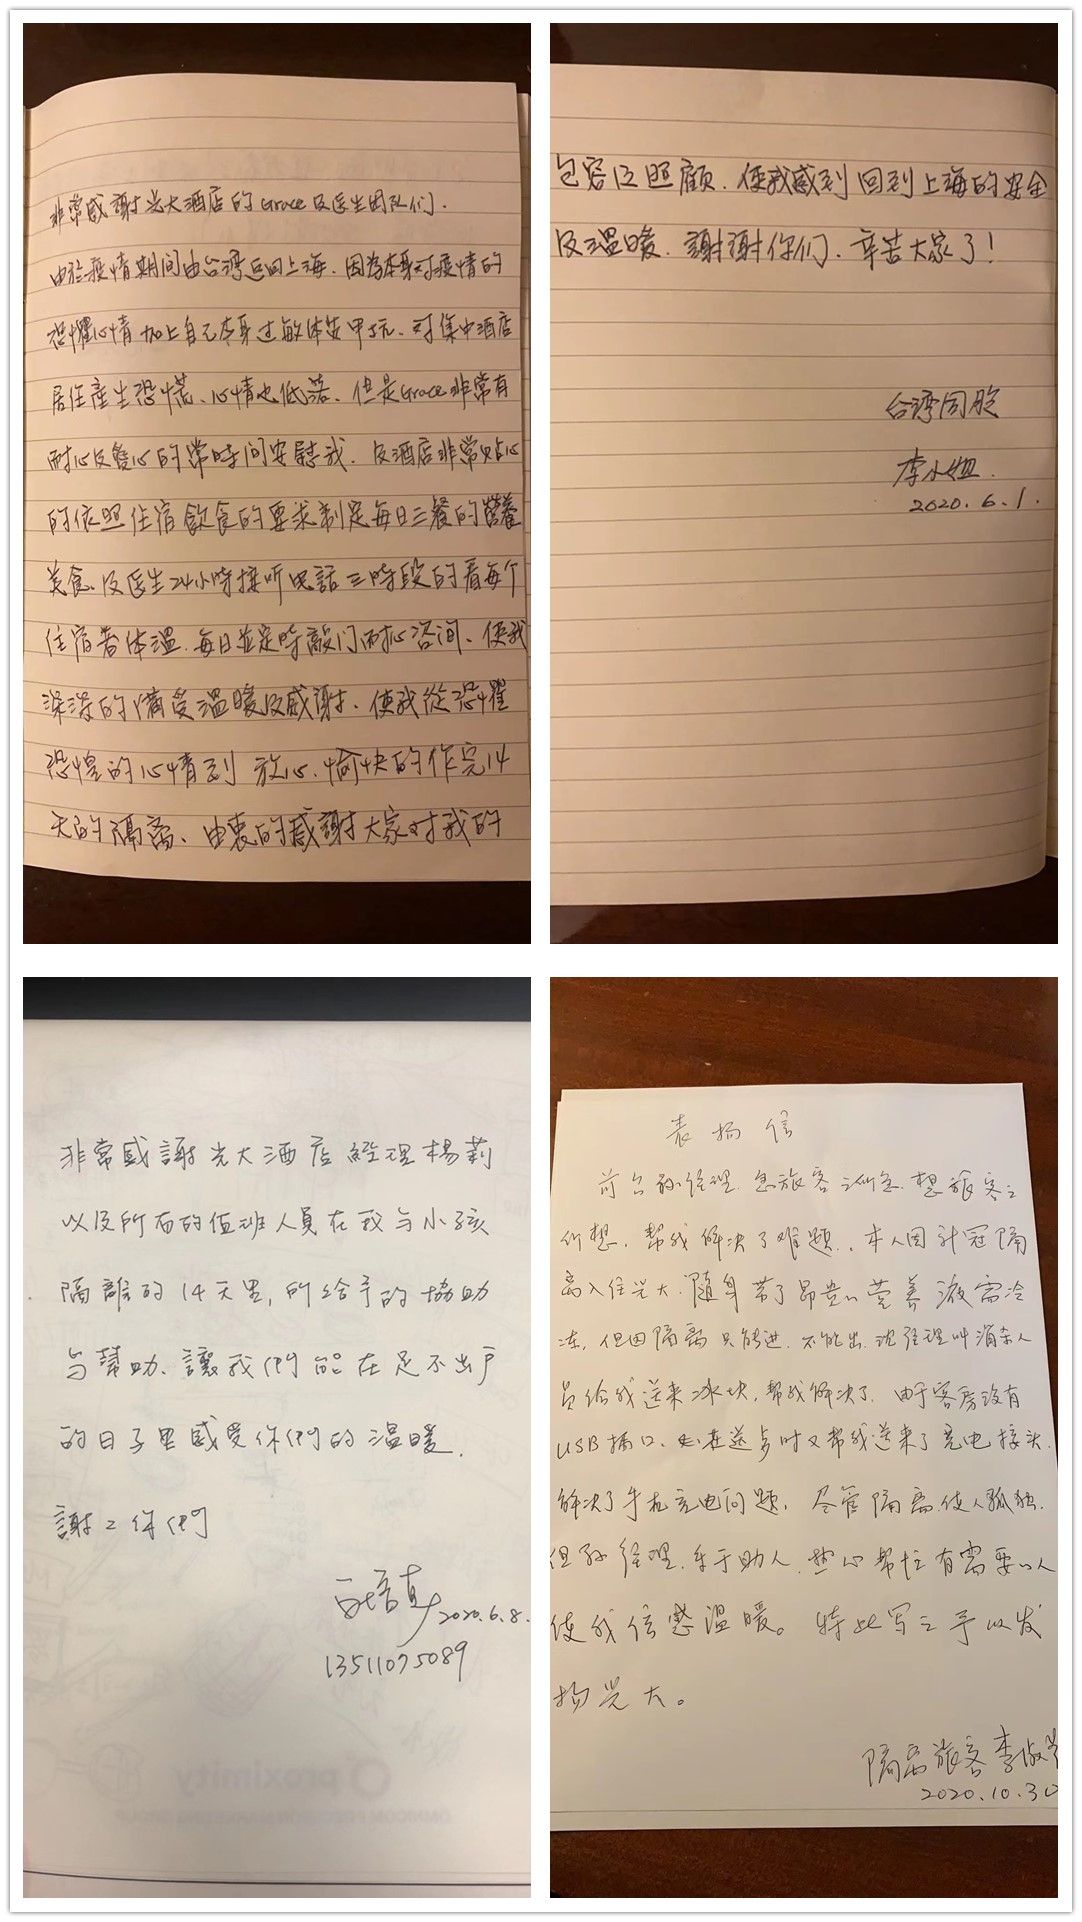 非常感謝光大酒店的Grace及医生团队们.
由於疫情期间由台湾返回上海.因為本身对疫情的
恐懼心情加上自己本身过敏体质甲亢.对集中酒店
居住產生恐慌、心情也低落、但是Grace非常有
耐心及愛心的常時间安慰我.及酒店非常贴心
的依照住宿飲食的要求制定每日三餐的營養
美食、及医生24小時接听电話三時段的看每个
住宿者体温.每日並定時敲门耐心咨询、使我
深深的備受温暖及感謝、使我從恐懼
恐惶的心情到放心.愉快的作完14
天的隔离、由衷的感謝大家对我的
包容及照顧.使我感到回到上海的安全
及温暖.謝謝你们.辛苦大家了!
台湾同胞
李小姐.
2020.6.1.
非常感謝光大酒店經理楊莉
以及所有的值班人員在我与小孩
隔離的14天里,所给予的協助
与幫助、讓我們能在足不出户
的日子里感受你們的温暖.
謝々你們
2020.6.8.
13511075089
表扬信
前台孙经理.急旅客之所急.想旅客之
所想.帮我解决了难题.本人因新冠隔
离入住光大.随身带了昂贵的营养液需冷
冻,但因隔离只能进.不能出.孙经理叫消杀人
员给我送来冰块,帮我解决了.由于客房没有
USB插口.她在送多时又帮我送来了充电接头.
解决了手机充电问题,尽管隔离使人孤独.
但孙经理.乐于助人.热心帮忙有需要的人
使我倍感温暖。特此写之予以发
扬光大。
隔离旅客李淑
2020.10.30